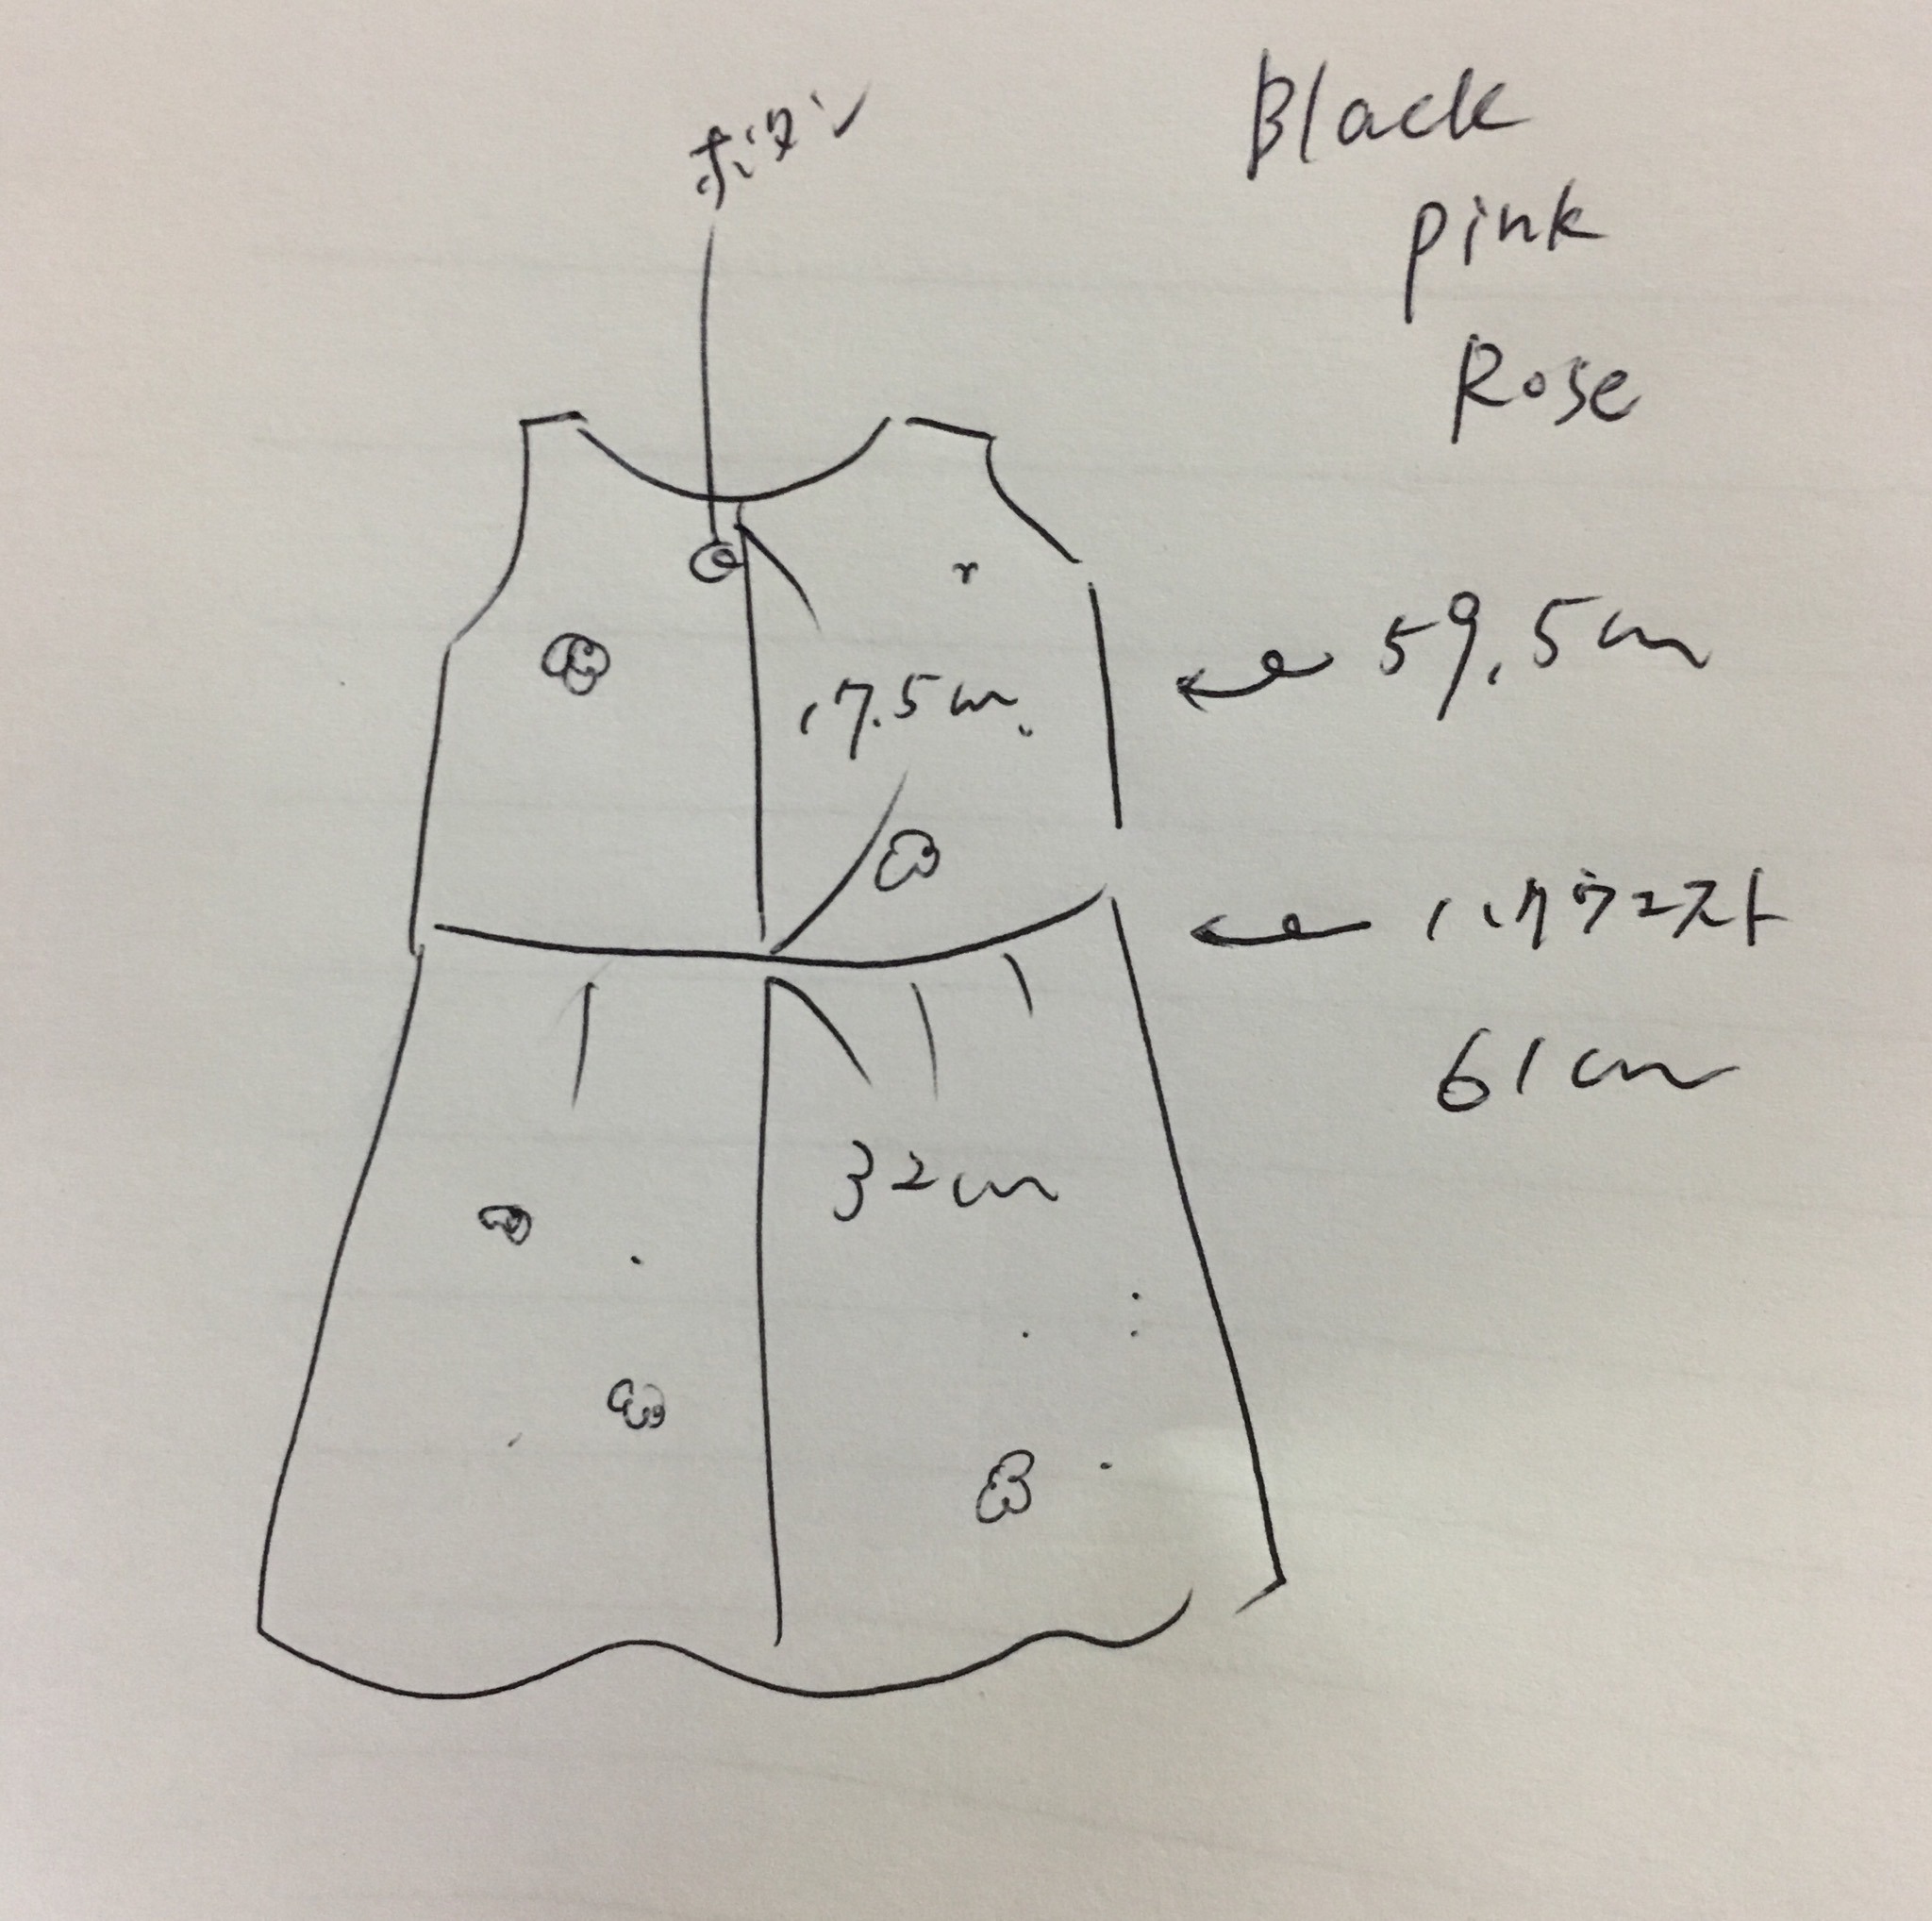 ボタン
Black
pink
Rose
59.5cm
17.5cm
ハイウエスト
61cm
32cm